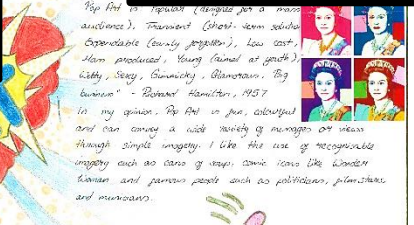 "Pop Art is Popular (designed for a mass
audience), Transient (short-term solution
Expendable (easily forgotten), Low cost,
Mass produced, Young (aimed at youth),
Witty, Sexy, Gimmicky, Glamorous, Big
business" - Richard Hamilton, 1957
In my opinion, Pop Art is fun, colourful
and can convey a wide variety of messages or views
through simple imagery. I like the use of recognisable
imagery such as cans of soup, comic icons like Wonder
Woman and famous people such as politicians, film stars
and musicians.